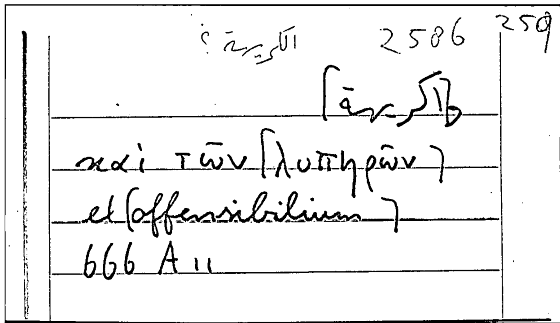 الكريهة ؟ 2586
[والكريهة
καὶ τῶν [λυπηρῶν]
et [offensibilium]
666 A 11